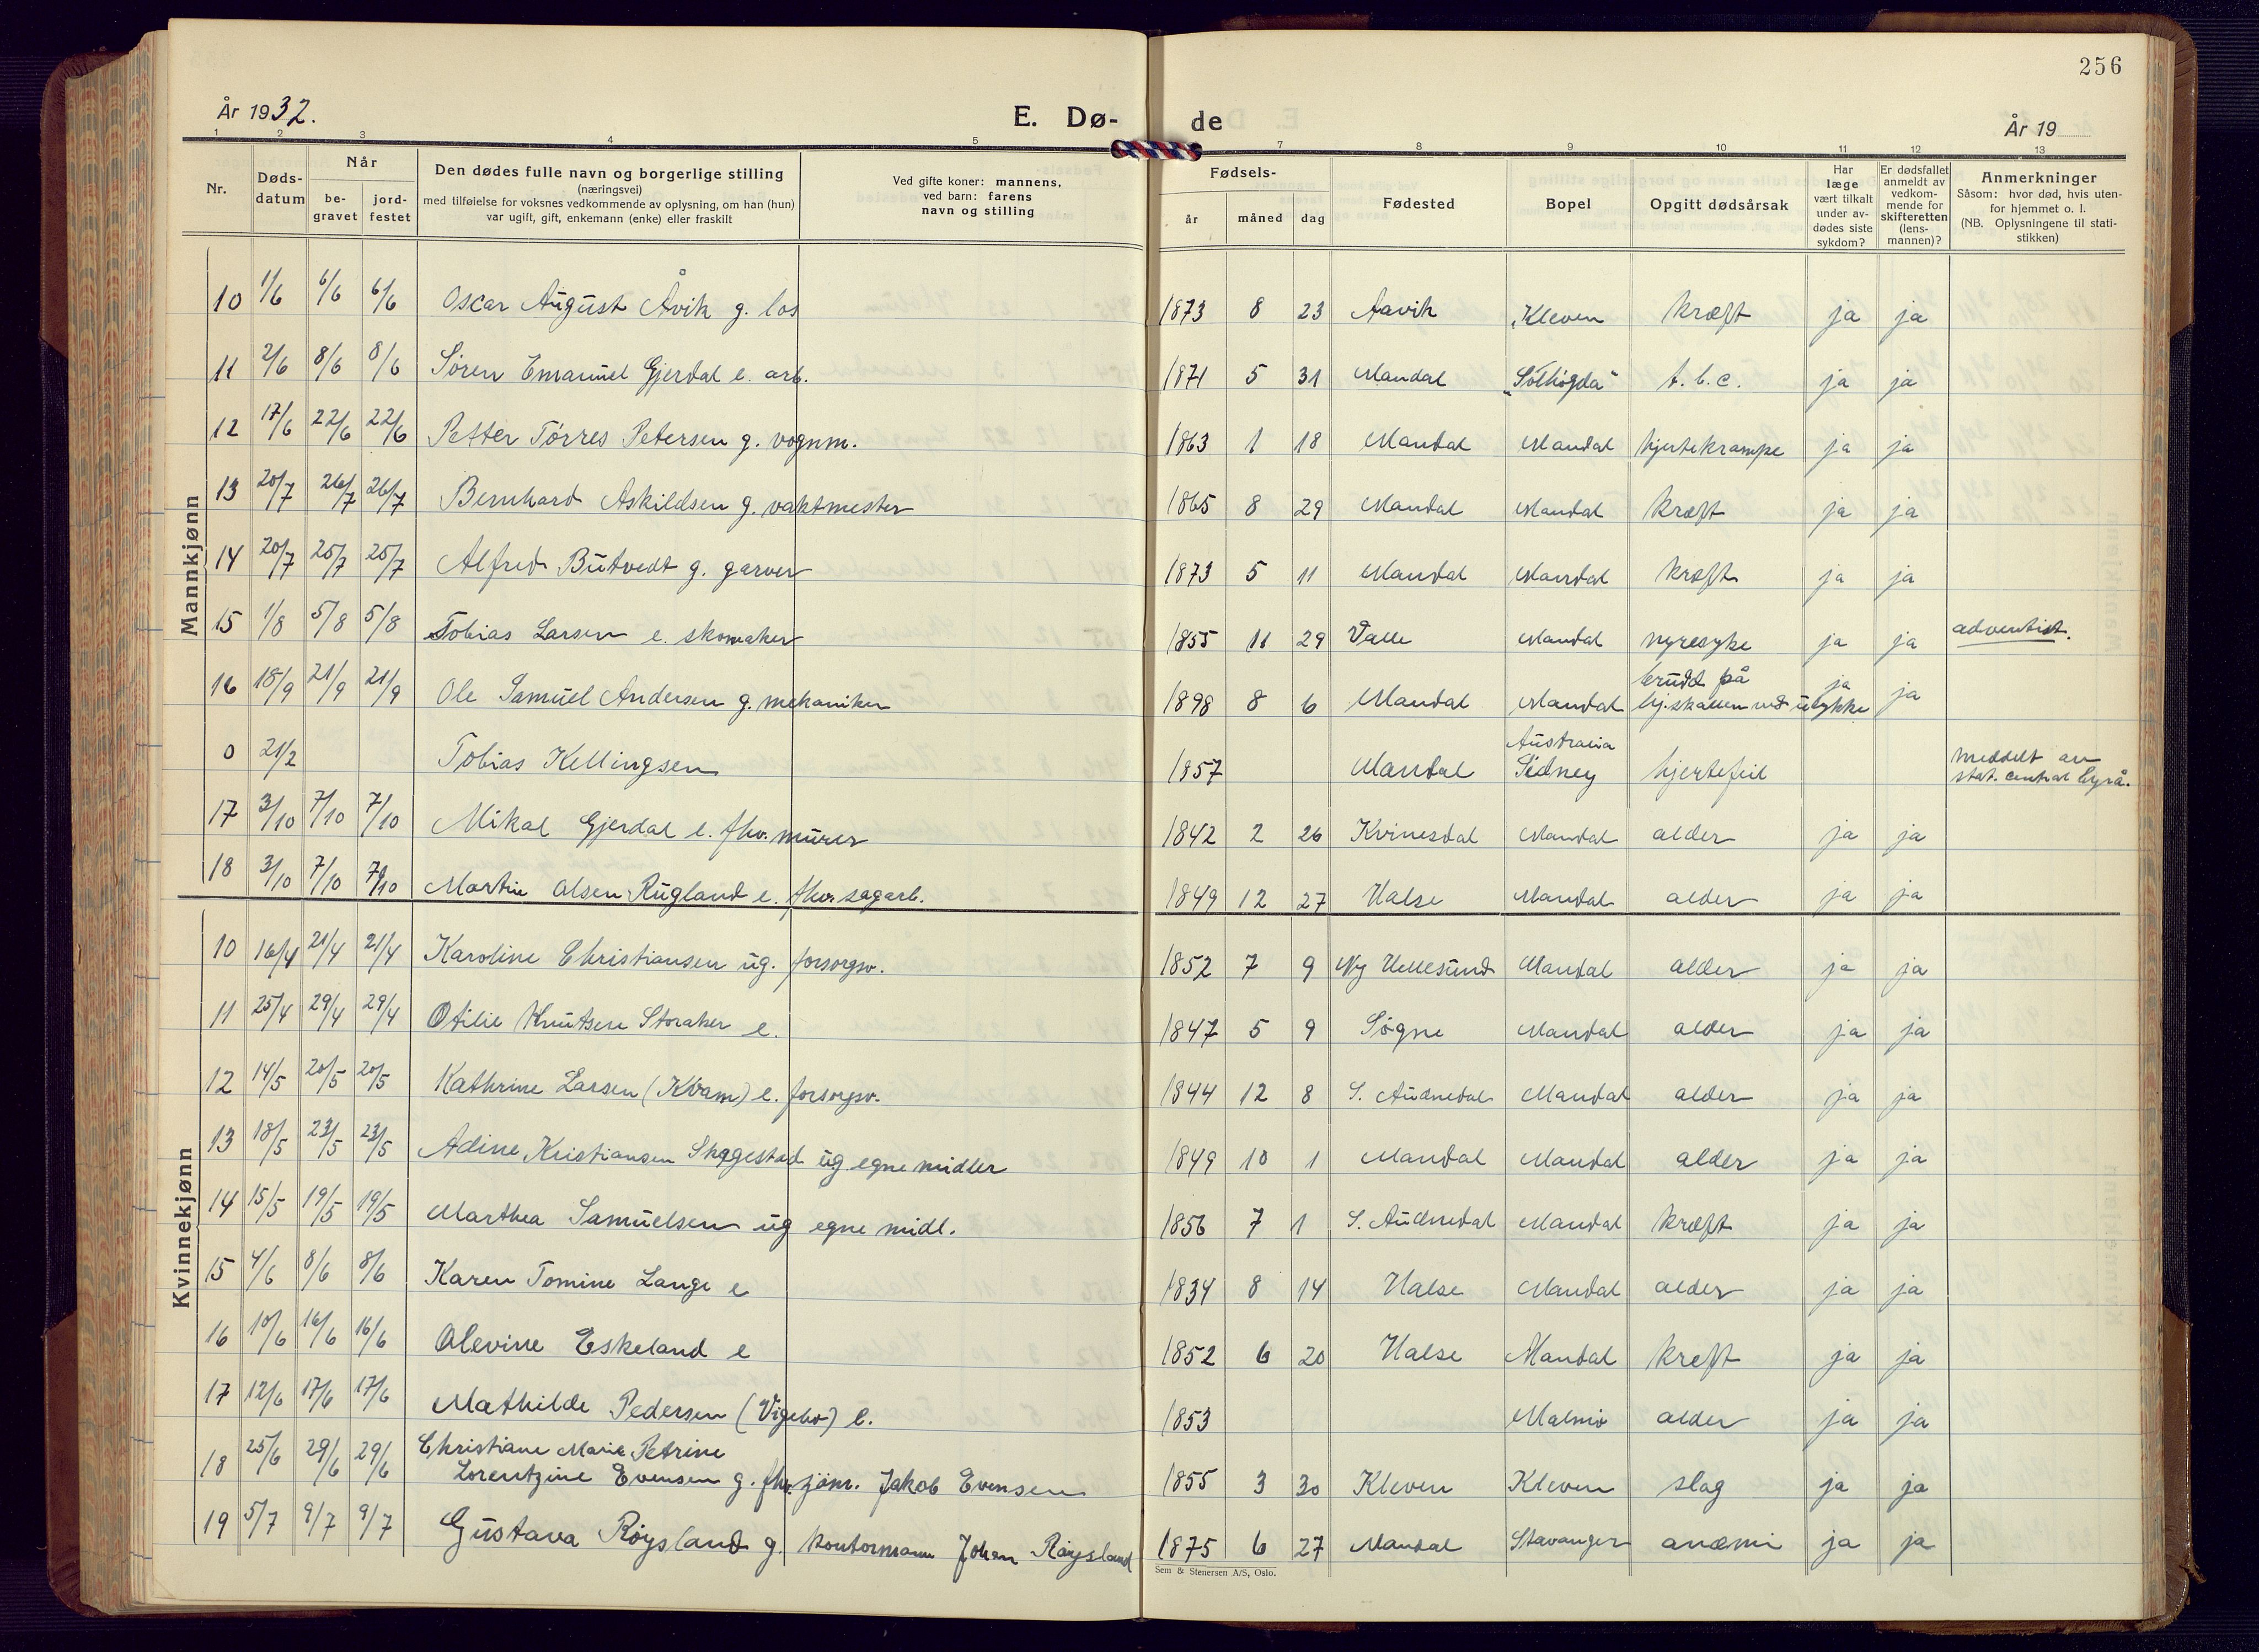 256
År 1932.
E. Dø-
de
År 19
1 2 3 4 5 7 8 9 10 11 12 13
Nr.
Døds-
datum
Når
be-
gravet
jord-
festet
Den dødes fulle navn og borgerlige stilling
(næringsvei)
med tilføielse for voksnes vedkommende av oplysning, om han (hun)
var ugift, gift, enkemann (enke) eller fraskilt
Ved gifte koner: mannens,
ved barn: farens
navn og stilling
Fødsels-
år
måned
dag
Fødested
Bopel
Opgitt dødsårsak
Har
læge
vært tilkalt
under av-
dødes siste
sykdom?
Er dødsfallet
anmeldt av
vedkom-
mende for
skifteretten
(lens-
mannen)?
Anmerkninger
Såsom: hvor død, hvis uten-
for hjemmet o. l.
(NB. Oplysningene til stati-
stikken)
Mannkjønn
10 1/6 6/6 6/6 Oscar August Åvik g. los 1873 8 23 Aavik Kleven kræft ja ja
11 2/6 8/6 8/6 Sören Emanuel Gjerdal e. arb. 1871 5 31 Mandal "Solhögda" t.b.c. ja ja
12 17/6 22/6 22/6 Petter Törres Petersen g. vognm. 1863 1 18 Mandal Mandal hjertekrampe ja ja
13 20/7 26/7 26/7 Bernhard Askildsen g. vaktmester 1865 8 29 Mandal Mandal kræft ja ja
14 20/7 25/7 25/7 Alfred Butvedt g. garver 1873 5 11 Mandal Mandal kræft ja ja
15 1/8 5/8 5/8 Tobias Larsen e. skomaker 1855 11 29 Valle Mandal nyresyke ja ja adventist.
16 18/9 21/9 21/9 Ole Samuel Andersen g. mekaniker 1898 8 6 Mandal Mandal brudd på
hj.skallen ved ulykke ja ja
0 21/2 Tobias Kellingsen 1857 Mandal Australia
Sidney hjertefeil meddelt av
stat. central byrå.
17 3/10 7/10 7/10 Mikal Gjerdal e. fhv. murer 1842 2 26 Kvinesdal Mandal alder ja ja
18 3/10 7/10 7/10 Martin Olsen Rugland e. fhv. sagarb. 1849 12 27 Halse Mandal alder ja ja
Kvinnekjønn
10 16/4 21/4 21/4 Karoline Christiansen ug. forsorgsv. 1852 7 9 Ny Hellesund Mandal alder ja ja
11 25/4 29/4 29/4 Otilie Knutsen Storaker e. 1847 5 9 Sögne Mandal alder ja ja
12 14/5 20/5 20/5 Kathrine Larsen (Kvam) e. forsorgsv. 1844 12 8 S. Audnedal Mandal alder ja ja
13 18/5 23/5 23/5 Adine Kristiansen Skogestad ug egne midler 1849 10 1 Mandal Mandal alder ja ja
14 15/5 19/5 19/5 Marthea Samuelsen ug egne midl. 1856 7 1 S. Audnedal Mandal kræft ja ja
15 4/6 8/6 8/6 Karen Tomine Lange e 1834 8 14 Halse Mandal alder ja ja
16 10/6 16/6 16/6 Olevine Eskeland e 1852 6 20 Halse Mandal kreft ja ja
17 12/6 17/6 17/6 Mathilde Pedersen (Vigebo) e. 1853 Malmö alder ja ja
18 25/6 29/6 29/6 Christiane Marie Petrine
Lorentzine Evensen g. fhv. sjöm. Jakob Evensen 1855 3 30 Kleven Kleven slag ja ja
19 5/7 9/7 9/7 Gustava Röysland g. kontormann Johan Röysland 1875 6 27 Mandal Stavanger anæmi ja ja
Sem & Stenersen A/S, Oslo.